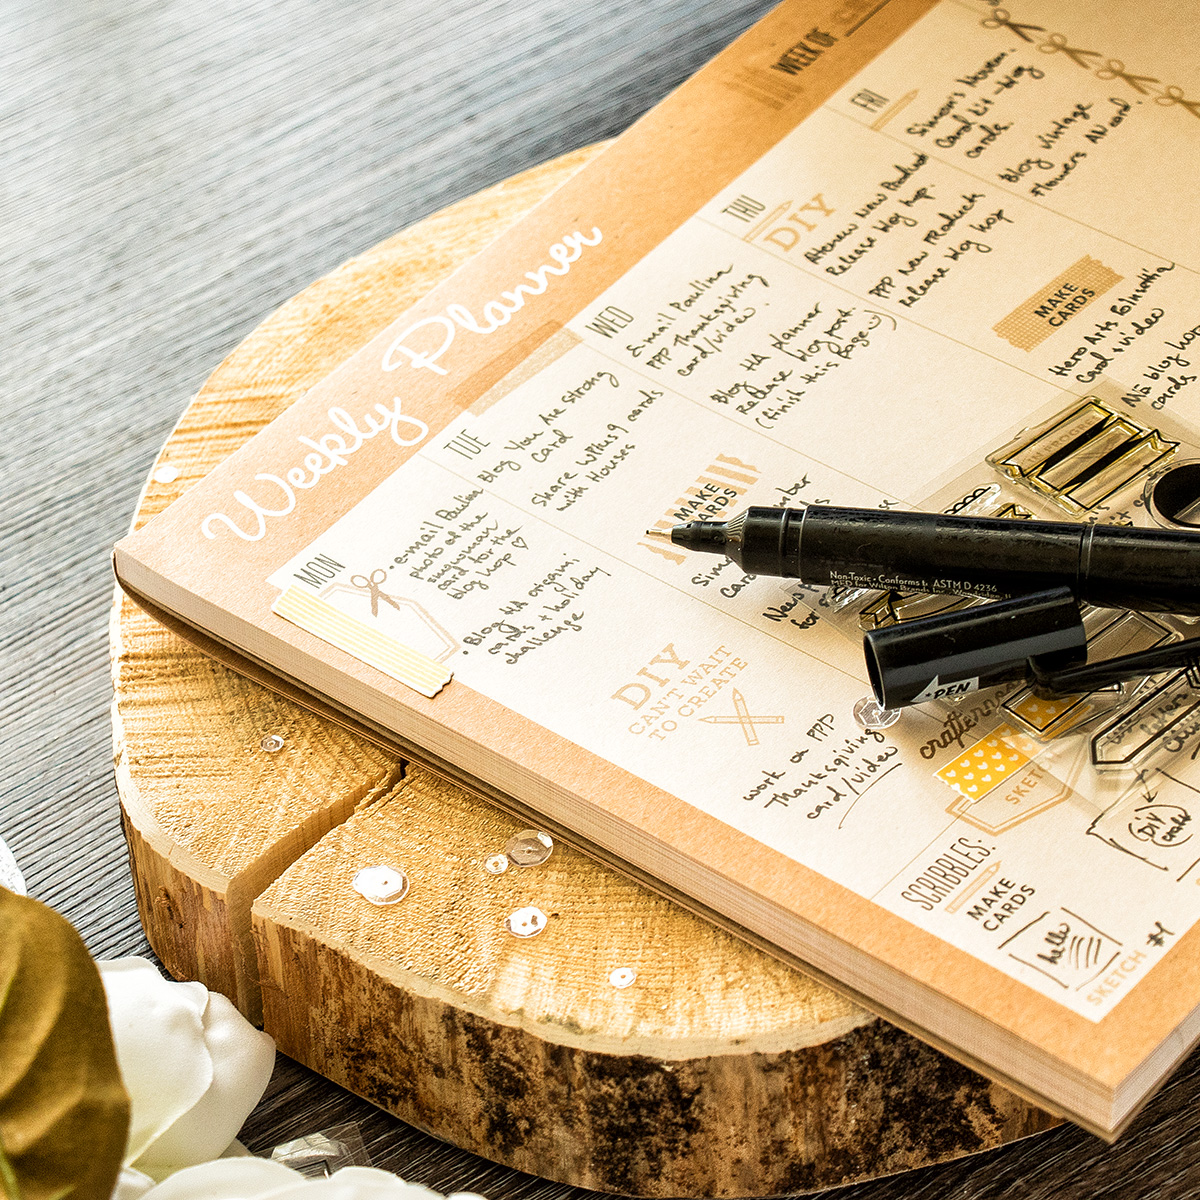 WEEK OF
Weekly Planner
MON
• e-mail Paulina
photo of the
card for the
blog hop ♡
• Blog HA
cards + holiday
challenge
TUE
Blog You Are Strong
card
Share with 9 cards
with Houses
WED
E-mail Paulina
PPP Thanksgiving
card/video.
Blog HA planner
Release blog post.
(finish this page☺)
THU
DIY
Altenew New Product
Release blog hop.
PPP new products
release blog hop
FRI
Simon's Novem.
Card kit - blog
cards.
Blog vintage
flowers AN card.
DIY
CAN'T WAIT
TO CREATE
work on PPP
Thanksgiving
card/video
MAKE
CARDS
MAKE
CARDS
Hero Arts
Card + video
No blog hop
cards
Non-Toxic • Conforms to ASTM D 4236
PEN
SKETCH
SCRIBBLES:
MAKE
CARDS
hello
SKETCH #1
DIY